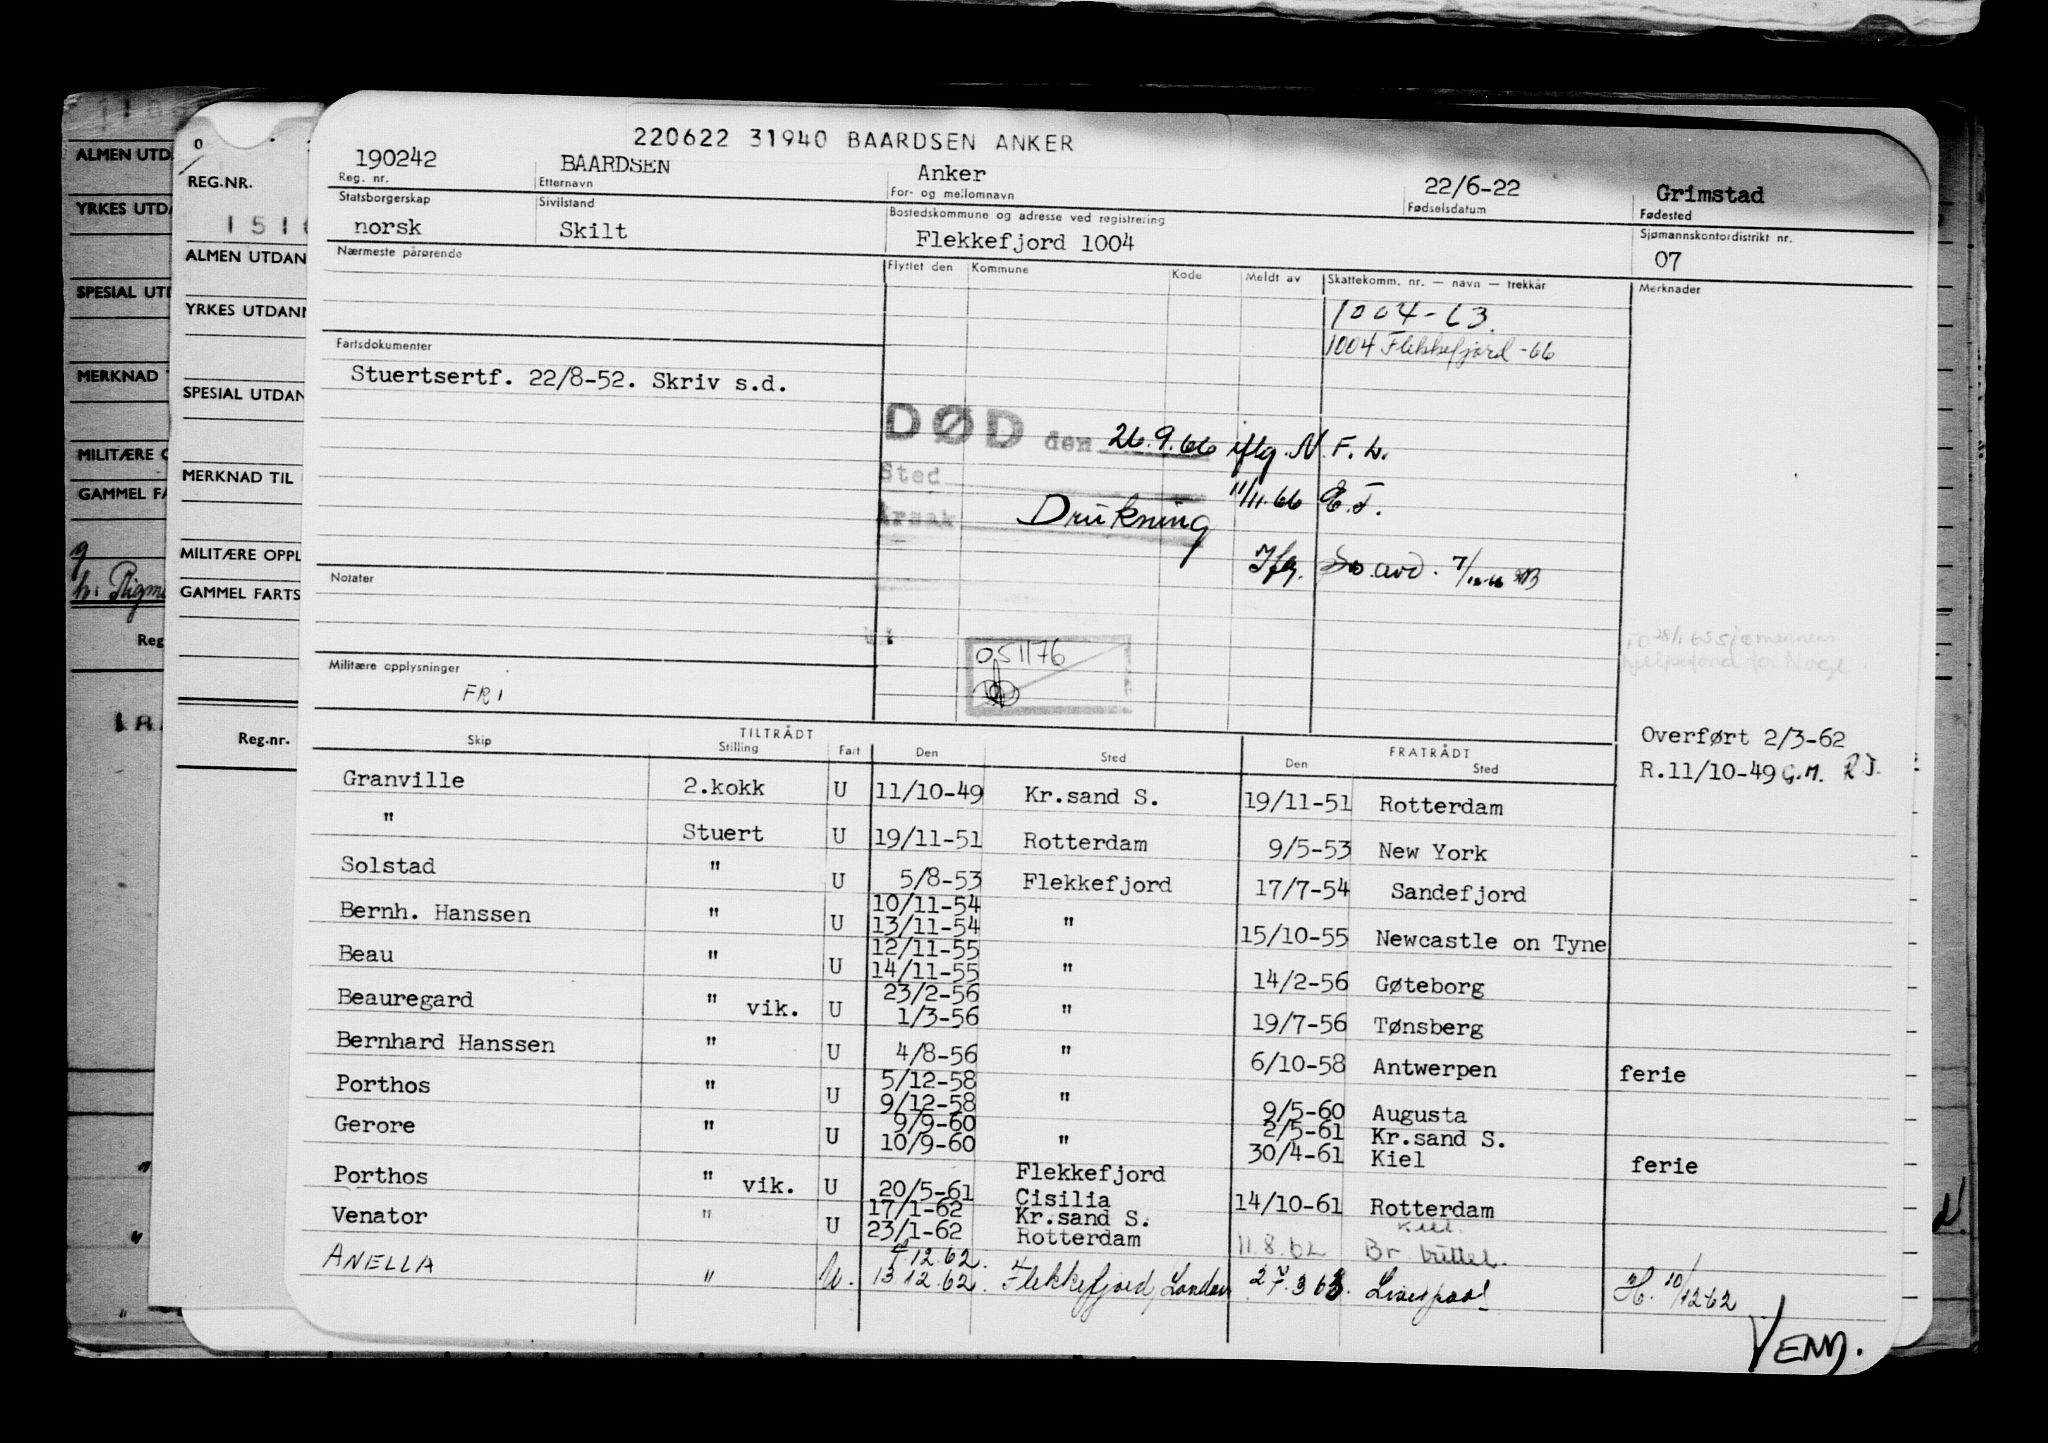 220622 31940 BAARDSEN ANKER
190242 BAARDSEN Anker 22/6-22 Grimstad
Reg. nr. Etternavn For- og mellomnavn Fødselsdatum Fødested
Statsborgerskap Sivilstand Bostedskommune og adresse ved registrering Sjømannskontordistrikt nr.
norsk Skilt Flekkefjord 1004 07
Nærmeste pårørende Flyttet den Kommune Kode Meldt av Skattekomm. nr. — navn — trekkår Merknader
1004-63.
1004 Flekkefjord -66
Fartsdokumenter
Stuertsertf. 22/8-52. Skriv s.d.
DØD den 26.9.66 iflg. N.F.L.
Sted 11/11.66 E.F.
Årsak Drukning
Iflg.
Notater
051176
Militære opplysninger
FRI
Overført 2/3-62
R.11/10-49 G.M. R.J.
TILTRÅDT FRATRÅDT
Skip Stilling Fart Den Sted Den Sted
Granville 2.kokk U 11/10-49 Kr.sand S. 19/11-51 Rotterdam
" Stuert U 19/11-51 Rotterdam 9/5-53 New York
Solstad " U 5/8-53 Flekkefjord 17/7-54 Sandefjord
Bernh. Hanssen " U 10/11-54 13/11-54 " 15/10-55 Newcastle on Tyne
Beau " U 12/11-55 14/11-55 " 14/2-56 Gøteborg
Beauregard " vik. U 23/2-56 1/3-56 " 19/7-56 Tønsberg
Bernhard Hanssen " U 4/8-56 " 6/10-58 Antwerpen ferie
Porthos " U 5/12-58 9/12-58 " 9/5-60 Augusta
Gerore " U 9/9-60 10/9-60 " 2/5-61 Kr.sand S. 30/4-61 Kiel ferie
Porthos " vik. U 20/5-61 Flekkefjord Cisilia 14/10-61 Rotterdam
Venator " U 17/1-62 23/1-62 Kr.sand S. Rotterdam 11.8.62 Kiel.
ANELLA " U. 7.12.62. 13.12.62. Flekkefjord, London 27.3.63. Liverpool H. 10/12 62
VENN.
ALMEN UTD
YRKES UTDA
SPESIAL UTD
MERKNAD T
MILITÆRE O
GAMMEL FA
Reg
REG.NR.
1516
ALMEN UTDAN
YRKES UTDANN
SPESIAL UTDAN
MERKNAD TIL
MILITÆRE OPPL
GAMMEL FARTS
Reg.nr.